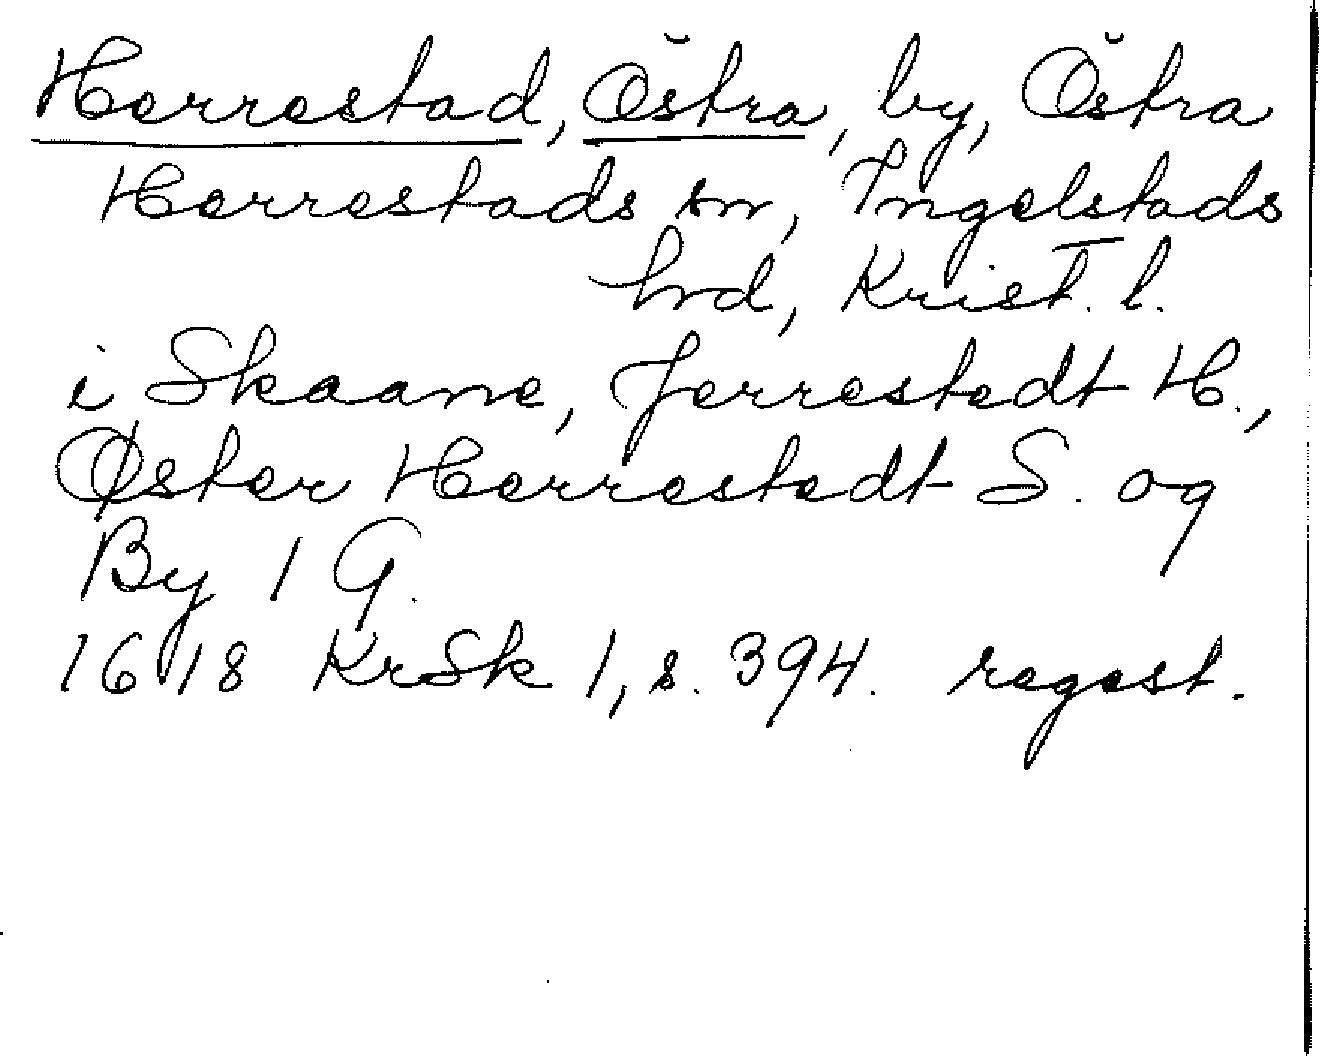 Herrestad, Östra, by, Östra
Herrestads sn, Ingelstads
hrd, Krist. l.
i Skaane, Jerrestedt H.,
Øster Herrestedt S. og
By 1 G.
1618 KrSk 1, s. 394. regest.